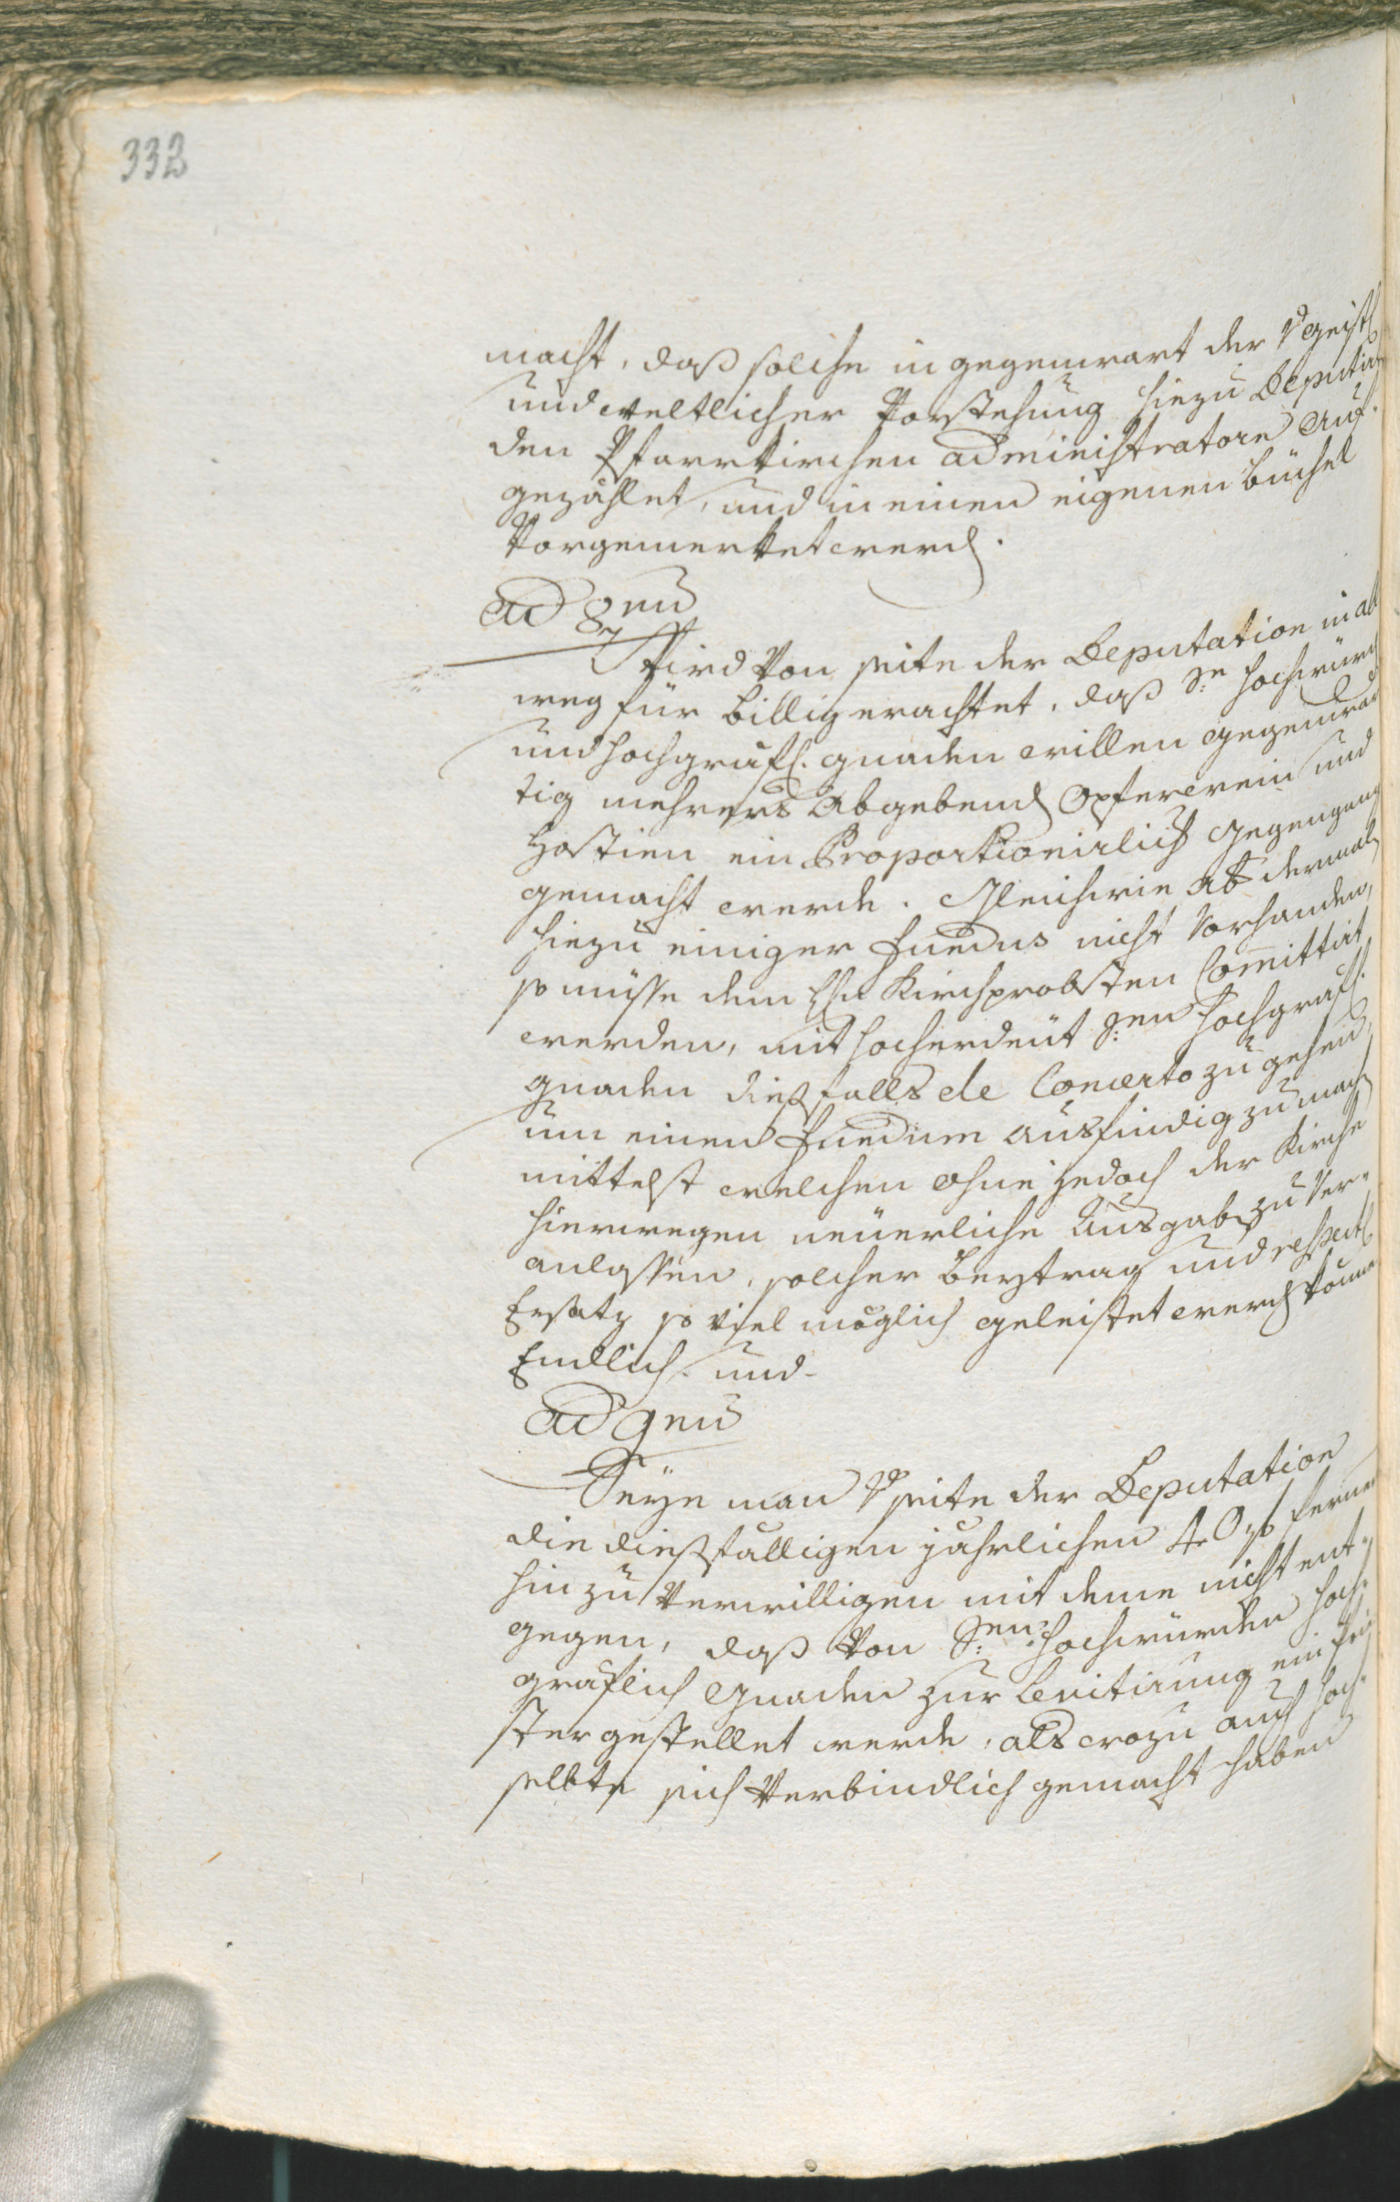 332
macht, daß solche in gegenwart der Vgeistl
und weltlicher Vorstehung hiezu deputir
den Pfarrkirchen administratorn auf-
gezählet, und in einen eigenen büchel
Vorgemerket werd.
ad 8um
Wird Von seite der Deputation in all
weg für billig erachtet, daß Se hochwürd
und hochgräfl. gnaden willen gegenwär
tig mehrers abgebend Opferwein und
Hostien ein Proportionirlich gegengang
gemacht werde. Gleichwie aber dermal
hiezu einiger fundus nicht Vorhanden,
so müsse dem Hn Kirchprobsten Committirt
werden, mit hocherdeut Sen hochgräfl.
gnaden diesfalls de Concerto zu gehen
um einen fundum ausfindig zu mach
mittelst welchen ohne jedoch der Kirche
hierwegen neuerliche Ausgab zu Ver-
anlassen, solcher beytrag und respect
Ersatz so viel möglich geleistet werd könne
Endlich und
ad 9um
Seye man V seite der Deputation
die diesfälligen jährlichen 40 f ferner
hin zu verwilligen mit deme nicht ent-
gegen, daß Von Sen hochwürden hoch-
gräflich Gnaden zur Levitirung ein Prie
ster gestellet werde, als wozu auch hoch-
selbte sich Verbindlich gemacht haben